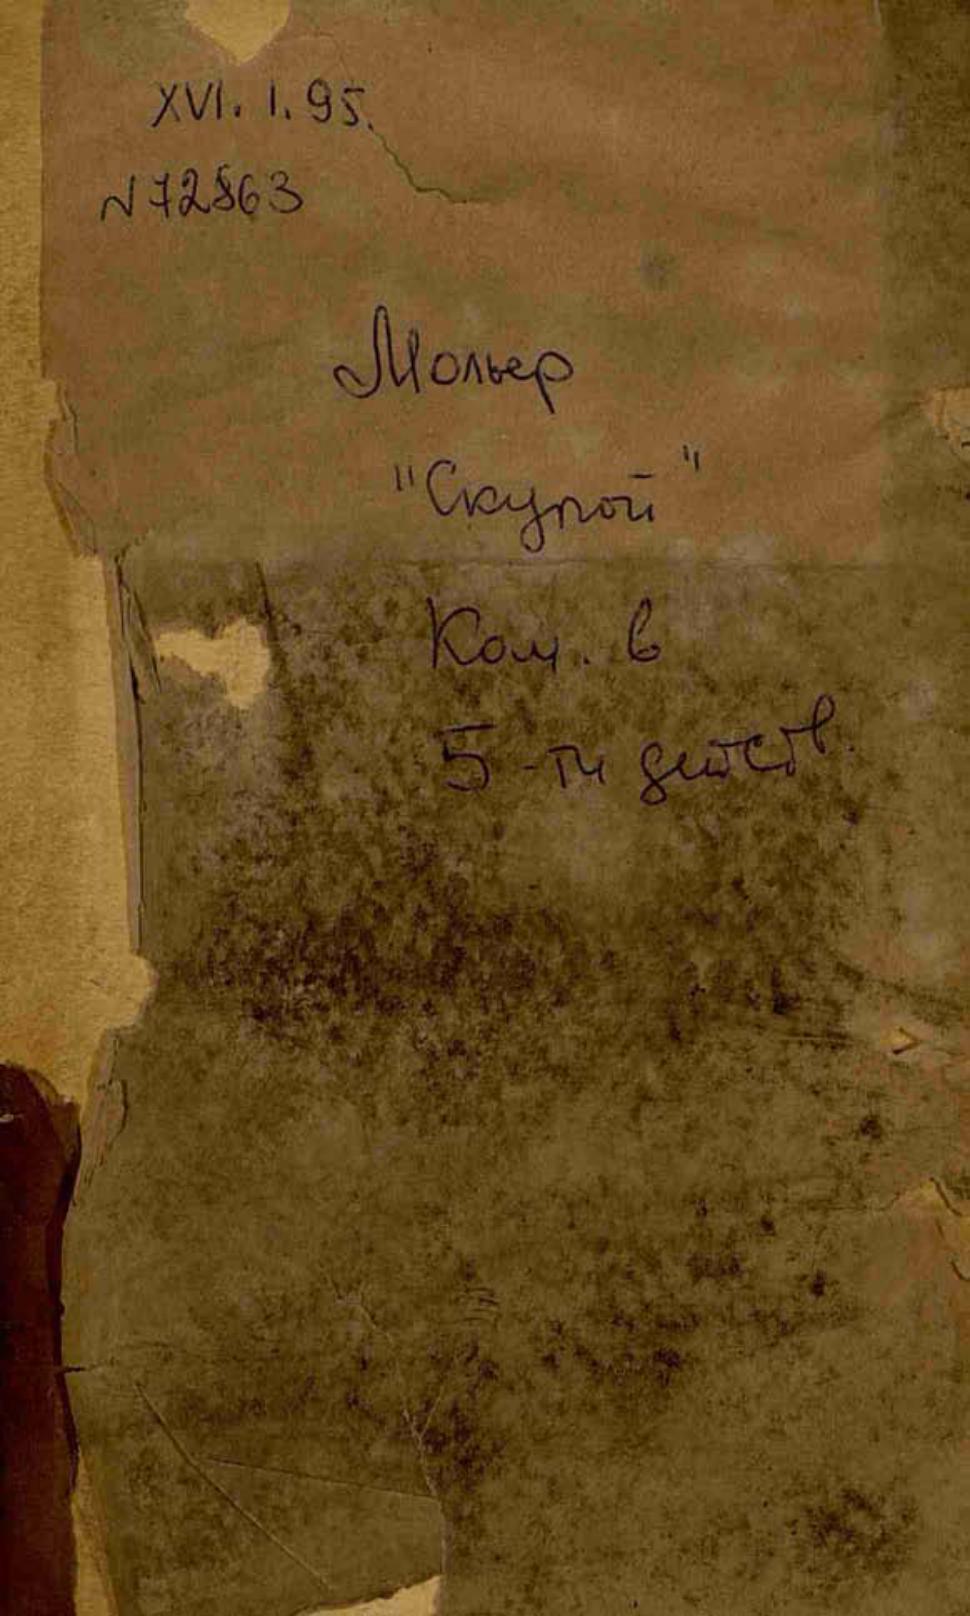 XVI. 1. 95.
N 72863
Мольер
"Скупой"
Ком. в
5-ти действ.